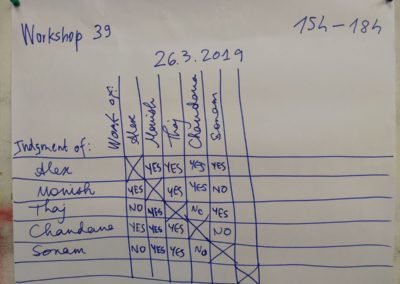 Workshop 39
15h - 18h
26.3.2019
Want of: Alex Monish Thaj Chandana Sonam
Judgment of:
Alex YES YES YES YES
Monish YES YES YES NO
Thaj NO YES NO YES
Chandana YES YES YES NO
Sonam NO YES YES NO